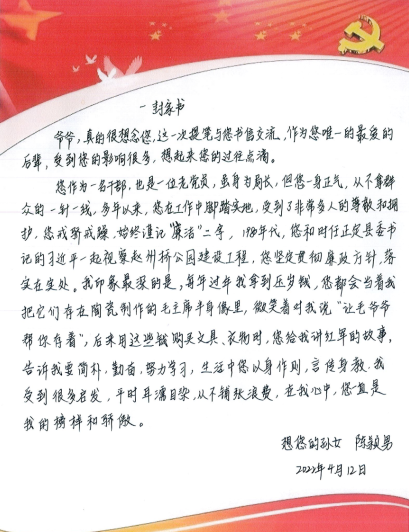 一封家书
爷爷，真的很想念您，这一次提笔与您书信交流，作为您唯一的最爱的
后辈，受到您的影响很多，想起来您的过往点滴。
您作为一名干部，也是一位老党员，虽身为局长，但您一身正气，从不拿群
众的一针一线，多年以来，您在工作中脚踏实地，受到了非常多人的尊敬和拥
护，您戒骄戒躁，始终谨记“廉洁”二字，1984年代，您和时任正定县委书
记的习近平一起视察赵州桥公园建设工程，您坚定贯彻廉政方针，落
实在实处。我印象最深的是，每年过年我拿到压岁钱，您都会当着我
把它们存在陶瓷制作的毛主席半身像里，微笑着对我说“让毛爷爷
帮你存着”，后来用这些钱购买文具、衣物时，您给我讲红军的故事，
告诉我要简朴，勤奋，努力学习，生活中您以身作则，言传身教，我
受到很多启发，平时耳濡目染，从不铺张浪费，在我心中，您直是
我的榜样和骄傲。
想您的孙女 陈颖男
2022年4月12日